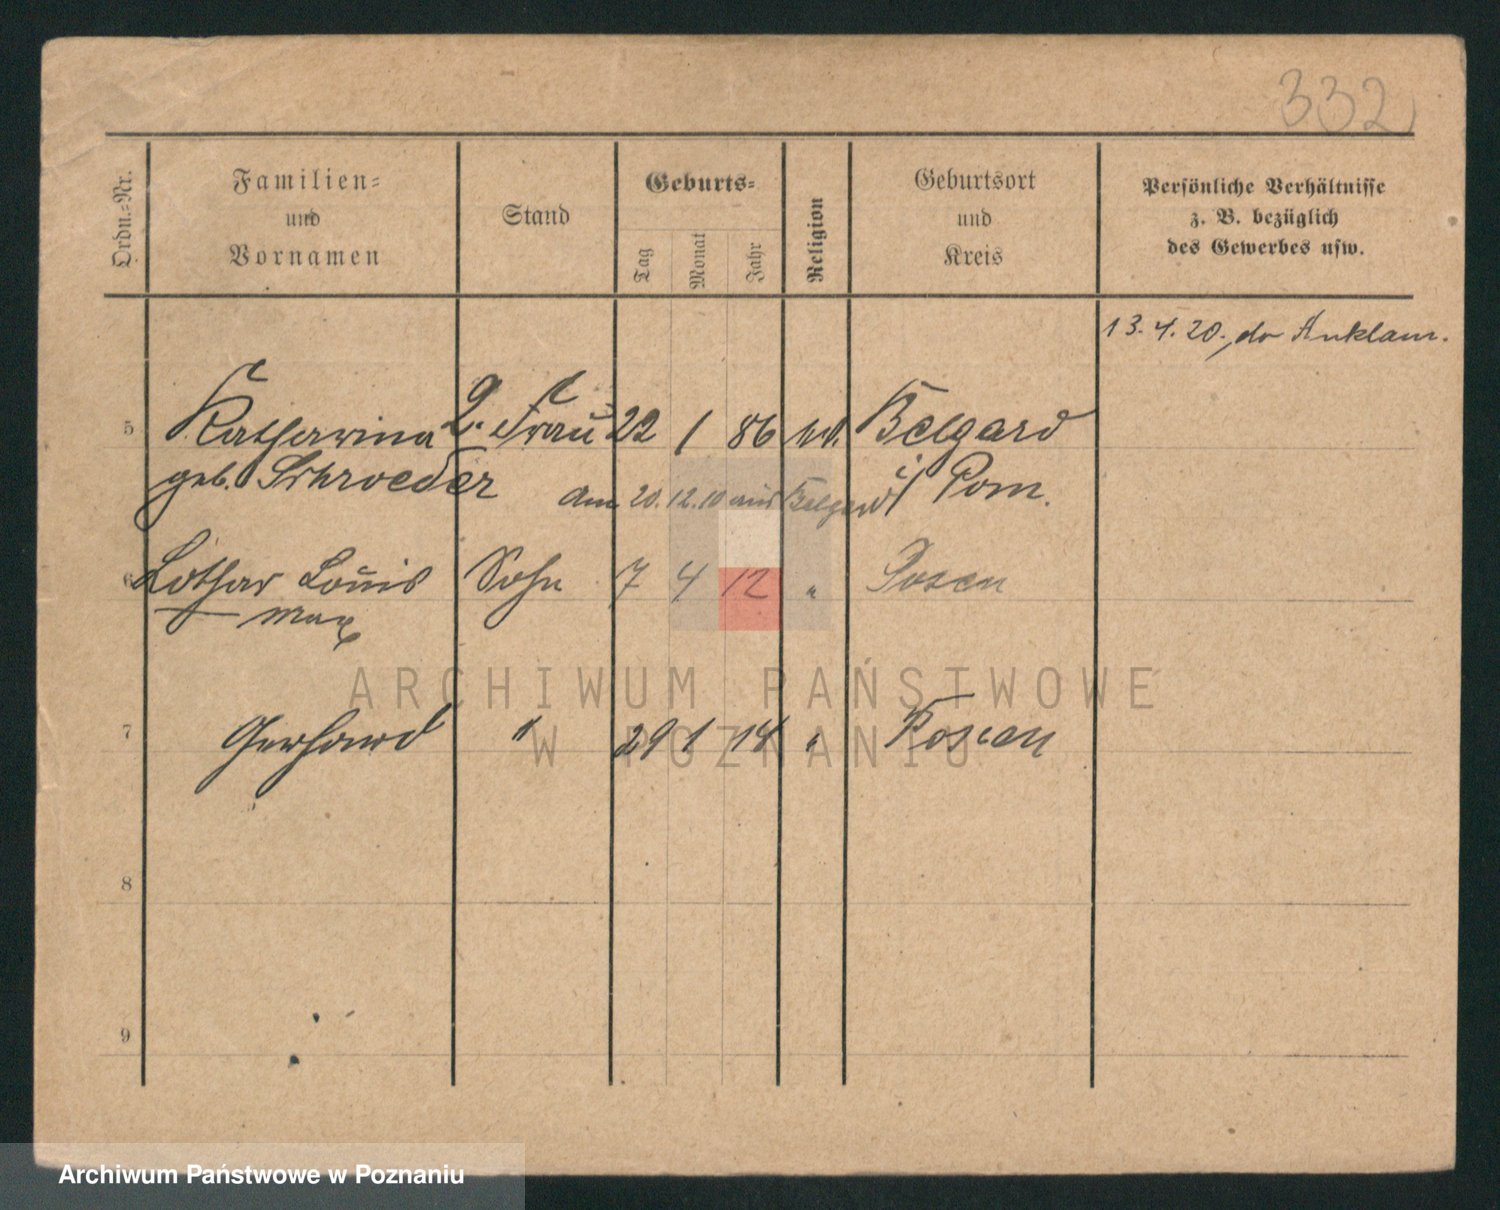 332
Ordn.=Nr.
Familien=
und
Vornamen
Stand
Geburts=
Tag
Monat
Jahr
Religion
Geburtsort
und
Kreis
Persönliche Verhältnisse
z. B. bezüglich
des Gewerbes usw.
13.4.20. do Anklam.
5 Katharina 2. Frau 22 1 86 Belgard
geb. Schroeder i/ Pom.
am 20.12.10 aus Belgard
6 Lothar Louis Sohn 7 4 12 " Posen
Max
7 Gerhard " 29 1 14 " Posen
8
9
ARCHIWUM PAŃSTWOWE
W POZNANIU
Archiwum Państwowe w Poznaniu